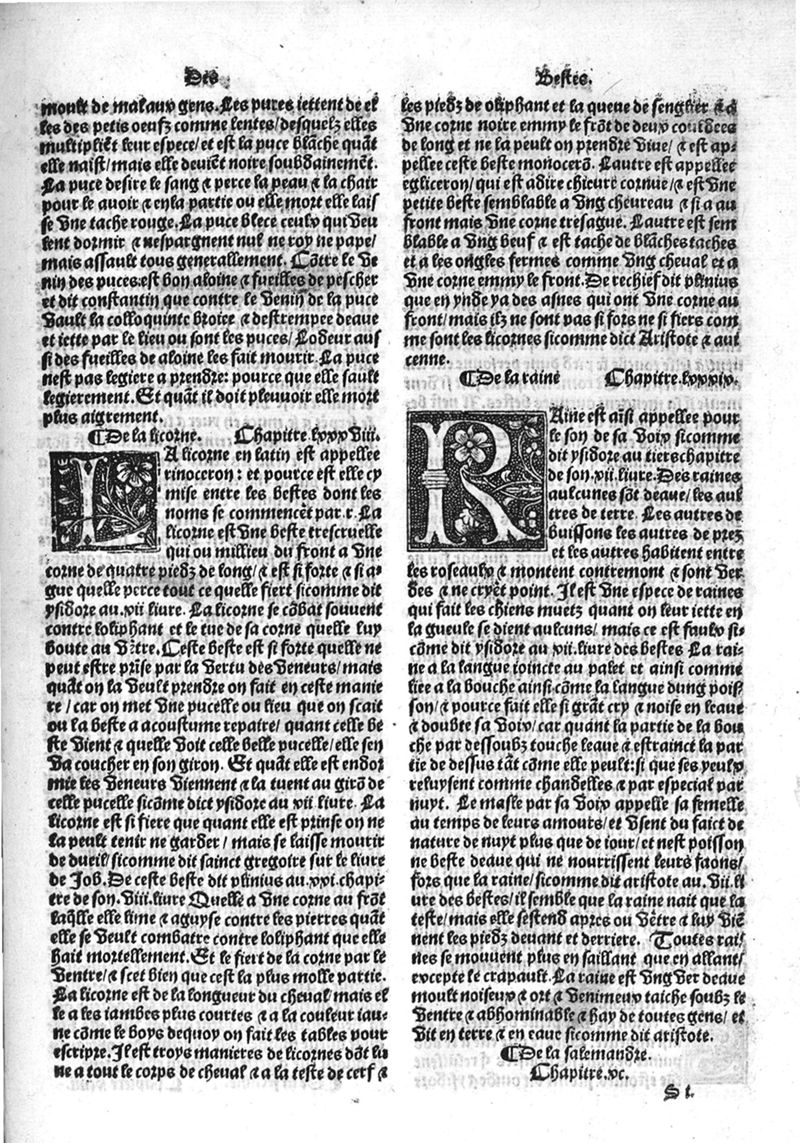 Des
moult de malaux gens. Les puces iettent de el
les des petis oeufz comme lentes/desquelz elles
multiplient leur espece/et est la puce blãche quãt
elle naist/mais elle deuiẽt noire soubdainement.
La puce desire le sang & perce la peau & la chair
pour le auoir & en la partie ou elle mort elle lais
se vne tache rouge. La puce blece ceulx qui veu
lent dormir & nespargnent nul ne roy ne pape/
mais assault tous generallement. Cõtre le ve
nin des puces est bon aloine & fueilles de pescher
et dit constantin que contre le venin de la puce
vault la colloquinte broiee & destrempee deaue
et iette par le lieu ou sont les puces/ Lodeur aus
si des fueilles de aloine les fait mourir. La puce
nest pas legiere a prendre: pource que elle sault
legierement. Et quãt il doit pleuuoir elle mort
plus aigrement.
¶De la licorne. Chapitre.lxxxviii.
LA licorne en latin est appellee
rinoceron: et pource est elle cy
mise entre les bestes dont les
noms se commencẽt par.r. La
licorne est vne beste trescruelle
qui ou millieu du front a vne
corne de quatre piedz de long/& est si forte & si a-
gue quelle perce tout ce quelle fiert sicomme dit
ysidore au.xii liure. La licorne se cõbat souuent
contre loliphant et le tue de sa corne quelle luy
boute au vẽtre. Ceste beste est si forte quelle ne
peut estre prĩse par la vertu des veneurs/mais
quãt on la veult prendre on fait en ceste manie
re/car on met vne pucelle ou lieu que on scait
ou la beste a acoustume repaire/quant celle be
ste vient & quelle voit celle belle pucelle/elle sen
va coucher en son giron. Et quãt elle est endor
mie les veneurs viennent & la tuent au girõ de
celle pucelle sicõme dict ysidore au xii liure. La
licorne est si fiere que quant elle est prinse on ne
la peult tenir ne garder/ mais se laisse mourir
de dueil/sicomme dit sainct gregoire sur le liure
de Job. De ceste beste dit plinius au.xxi.chapi-
tre de son.viii.liure Quelle a vne corne au frõt
laq̃lle elle lime & aguyse contre les pierres quãt
elle se veult combatre contre loliphant que elle
hait mortellement. Et le fiert de la corne par le
ventre/& scet bien que cest la plus molle partie.
La licorne est de la longueur du cheual mais el
le a les iambes plus courtes & a la couleur iau-
ne cõme le boys dequoy on fait les tables pour
escripre. Il est troys manieres de licornes dõt lu
ne a tout le corps de cheual & a la teste de cerf &
Bestes.
les piedz de oliphant et la queue de senglier & a
vne corne noire emmy le frõt de deux coutdees
de long et ne la peult on prendre viue/& est ap-
pellee ceste beste monocerõ. Lautre est appellee
egliceron/qui est adire chieure cornue/& est vne
petite beste semblable a vng cheureau & si a au
front mais vne corne tresague. Lautre est sem
blable a vng beuf & est tache de blãches taches
et a les ongles fermes comme vng cheual et a
vne corne emmy le front. De rechief dit plinius
que en ynde ya des asnes qui ont vne corne au
front/mais ilz ne sont pas si fors ne si fiers com
me sont les licornes sicomme dict Aristote & aui
cenne.
¶De la raine Chapitre.lxxxix.
RAine est aĩsi appellee pour
le son de sa voix sicomme
dit ysidore au tiers chapitre
de son.xii.liure. Des raines
aulcunes sõt deaue/les aul
tres de terre. Les autres de
buissons les autres de prez
et les autres habitent entre
les roseaulx & montent contremont & sont ver
des & ne cryẽt point. Il est vne espece de raines
qui fait les chiens muetz quant on leur iette en
la gueule se dient aulcuns/ mais ce est faulx si-
cõme dit ysidore au.xii.liure des bestes La rai-
ne a la langue ioincte au palet et ainsi comme
liee a la bouche ainsi cõme la langue dung pois
son/& pource fait elle si grãt cry & noise en leaue
& doubte sa voix/car quant la partie de la bou
che par dessoubz touche leaue & estrainct la par
tie de dessus tãt cõme elle peult: si que ses yeulx
reluysent comme chandelles & par especial par
nuyt. Le masle par sa voix appelle sa femelle
au temps de leurs amours/et vsent du faict de
nature de nuyt plus que de iour/et nest poisson
ne beste deaue qui ne nourrissent leurs faons/
fors que la raine/sicomme dit aristote au.vii.li
ure des bestes/il semble que la raine nait que la
teste/mais elle sestend apres ou vẽtre & luy viẽ
nent les piedz deuant et derriere. Toutes rai/
nes se mouuent plus en saillant que en allant/
excepte le crapault. La raine est vng ver deaue
moult noiseux & ort & venimeux taiche soubz le
ventre & abhominable & hay de toutes gens/et
vit en terre & en eaue sicomme dit aristote.
¶De la salemandre.
Chapitre.xc.
S i.